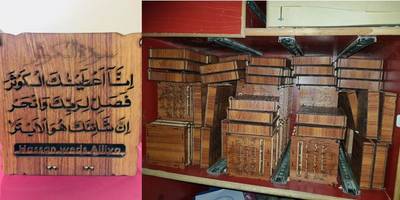 إنا أعطينك الكوثر
فصل لربك وانحر
إن شانئك هو الأبتر
Hassan weds Aliya